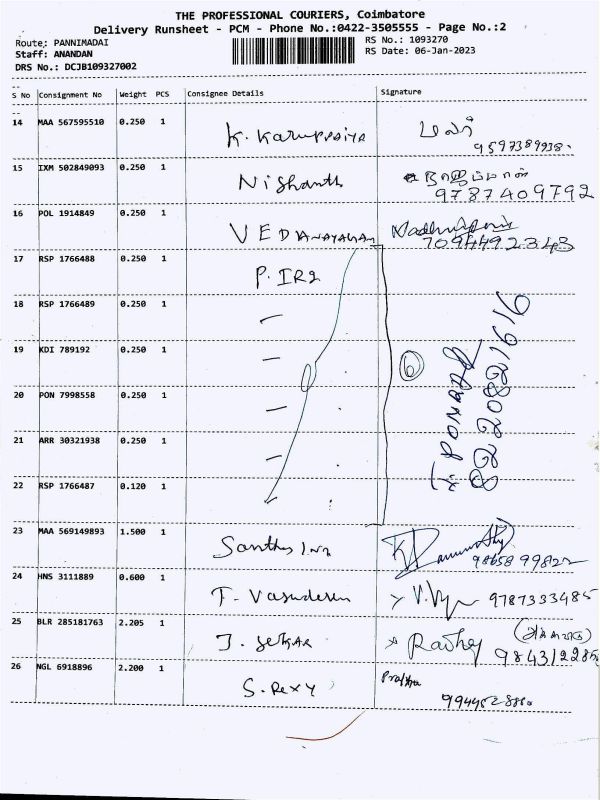 THE PROFESSIONAL COURIERS, Coimbatore
Delivery Runsheet - PCM - Phone No.:0422-3505555 - Page No.:2
Route: PANNIMADAI
RS No.: 1093270
Staff: ANANDAN
RS Date: 06-Jan-2023
DRS No.: DCJB109327002
S No Consignment No Weight PCS Consignee Details Signature
14 MAA 567595510 0.250 1 K. Karuppaiya மலர்
9597389938.
15 IXM 502849093 0.250 1 Nishanth
9787409792
16 POL 1914849 0.250 1 VEDANAYAGAM
7094492343
17 RSP 1766488 0.250 1 P. IR2
18 RSP 1766489 0.250 1 —
19 KDI 789192 0.250 1 — 6
20 PON 7998558 0.250 1 —
21 ARR 30321938 0.250 1 —
22 RSP 1766487 0.120 1
8220821616
23 MAA 569149893 1.500 1
24 HNS 3111889 0.600 1 T. Vasudevan 9787333485
25 BLR 285181763 2.205 1 J. Sekar
26 NGL 6918896 2.200 1 S. Rexy